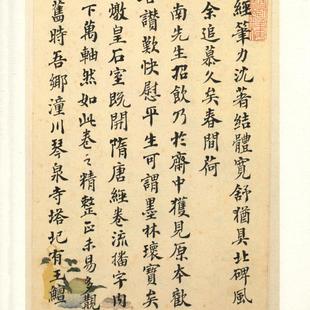 經筆力沈著結體寬舒猶具北碑風
余追慕久矣春間荷
南先生招飲乃於齋中獲見原本歡
讚歎快慰平生可謂墨林瓌寶矣
燉皇石室既開隋唐經卷流播宇内
下萬軸然如此卷之精整正未易多觀
舊時吾鄉潼川琴泉寺塔圮有王鱣